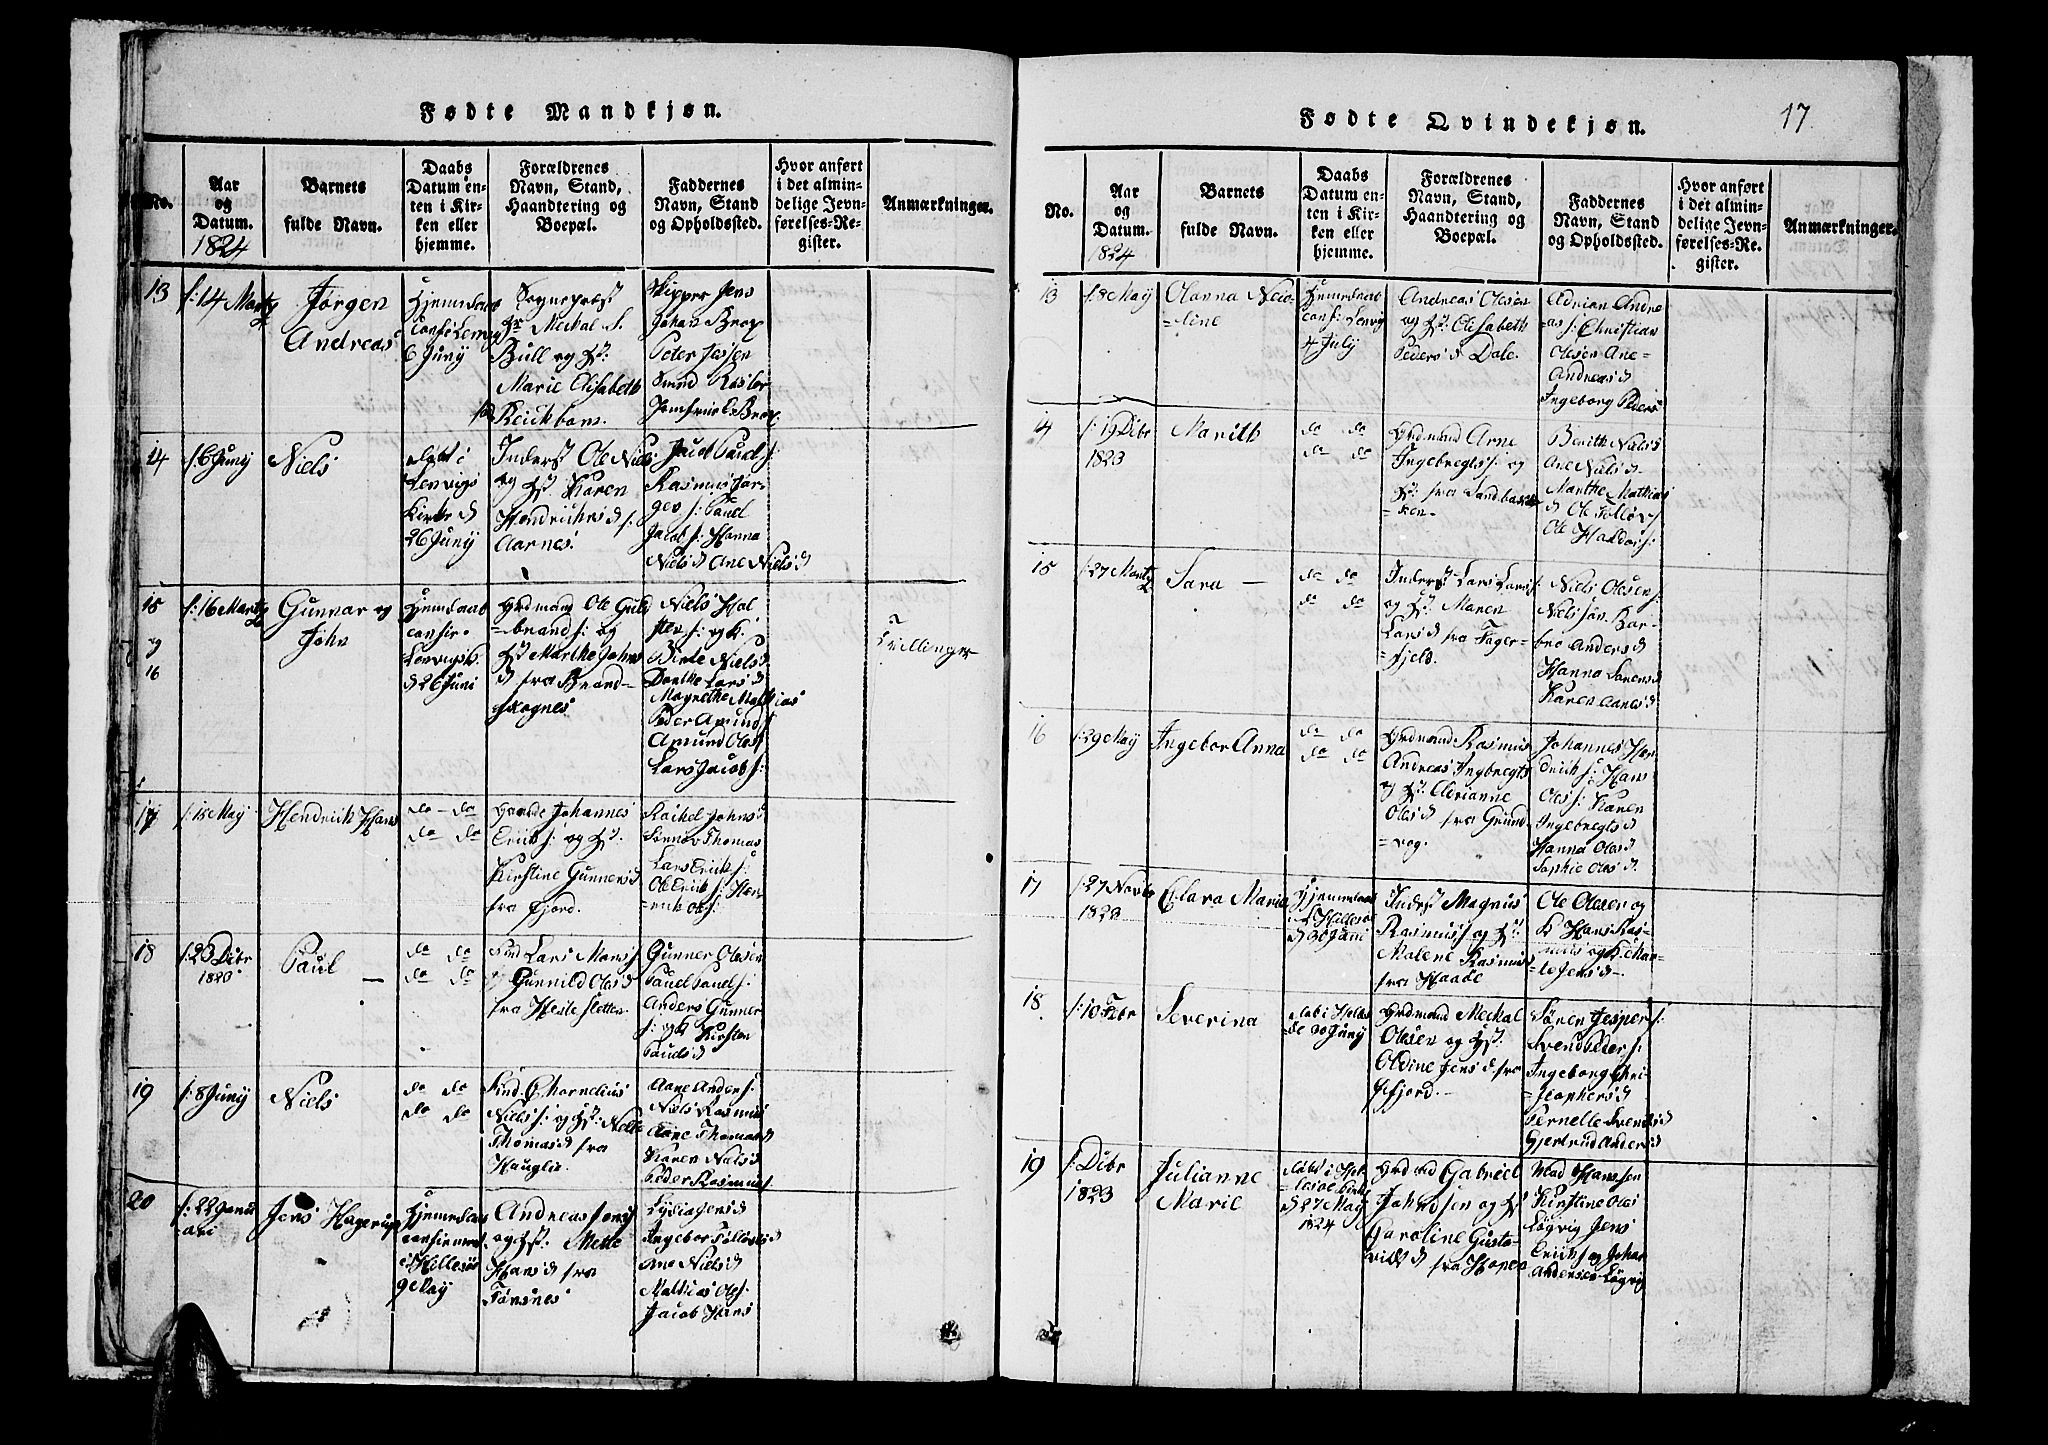 Fødte Mandkjøn.
No.
Aar
og
Datum.
1824
Barnets
fulde Navn.
Daabs
Datum en-
ten i Kir-
ken eller
hjemme.
Forældrenes
Navn, Stand,
Haandtering og
Boepæl.
Faddernes
Navn, Stand
og Opholdssted.
Hvor anført
i det almin-
delige Jevn-
førelses-Re-
gister.
Anmærkninger.
13
f: 14 Martz
Jørgen
Andreas
Hjemdøbt
conf: Lenvig
6 Juny
Sognepræst
Hr Mechal S.
Bull og H:
Marie Elisabeth
Skipper Jens
Johan Brox
Peter Jessen
14
f: 6 Juny
Niels
døbt i
Lenvigs
Kirke d
26 Juny
Inderst Ole Niels
og H: Karen
Hendrichsd f:
Aarnes.
Paul f:
Rasmus Jør-
gen f: Paul
Jacob f: Hanna
Nielsd Ane Nielsd
15
og
16
f: 16 Martz
Gunnar og
John
Hjemdøbt
confir-
Lenvigs K.
d 26 Juni
Grdmand Ole Guld
=brands: og
H: Marthe Johns
d fra Brand-
skognes
Niels Hal
Birte Nielsd
Dorthe Larsd
Magrethe Mathias
Peder Amund f
Amund Oles f
Lars Jacob f:
Tvillinger
17
f: 15 May
Hendrick Hans
do - do
do do
Johannes
Erich f: og H:
Kirstine Gunnersd
fra Fjord.
Rachel Johnsd
Thomas
Lars Erich f:
Ole Erich f: Hen
=rich Ole f:
18
f: 23 Dibr
1823
Paul —
do do
do do
Lars Mons f
Gunnild Olesd
fra
Gunner Olesen
Paul Paul f:
Anders Gunner
f: og Kirsten
Paulsd
19
f: 8 Juny
Niels
do do
do do
Chornelius
Niels f: og H:
Thomasd fra
Hauglie.
Aane Ander f:
Niels Rasmus
Aane Thomasd
Karen Nielsd
Peder Rasmus f.
20
f: 22 Janu
ari
Jens Hagerup
Hjemdøbt
i Hillesø
9 May
Andreas Jens f
og H: Mette
Hansd fra
Tørsnes
Lydia Jensd
Ingebor Tollefsd
Ane Nielsd
Mathias Ole f.
Jacob Hans
Fødte Qvindekjøn.
17.
No.
Aar
og
Datum.
1824
Barnets
fulde Navn.
Daabs
Datum en-
ten i Kir-
ken eller
hjemme.
Forældrenes
Navn, Stand,
Haandtering og
Boepæl.
Faddernes
Navn, Stand
og Opholdssted.
Hvor anført
i det almin-
delige Jevn-
førelses-Re-
gister.
Anmærkninger.
13
f. 8 May
Olanna Nico-
=line
Hjemdøbt
conf: Lenvig
4 July
Andreas Olesen
og H: Elisabeth
Peders d Dale.
Adrian Andre
=as f: Christian
Olesen Ane =
Andreasd
Ingeborg Peders
14
f: 19 Dibr
1823
Marith
do do
do do
Grdmand Arne
Ingebregts f: og
H: fra Sandbakk
=ken.
Berith Nielsd
Ane Nielsd.
Marthe Mathias
d Ole Tollev f
Ole Haldor f:
15
f: 27 Martz
Sara —
do do
do do
Inderst Lars Lars f
og H: Maren
Larsd fra Fager=
=fjeld.
Niels Olesen
Niels Jon Bar-
bro Andersd
Hanna Sørensd
Karen Aanesd
16
f. 29 May
Ingebor Anna
do do
do do
Grdmand Rasmus
Andreas Ingbregts
og H: Adrianne
Olesd fra Grund-
=vog.
Johannes Hen
drich f: Hans
Oles f: Karen
Ingebregtsd
Hanna Olesd
Sophie Olesd.
17
f: 27 Novbr
1823
Clara Maria
Hjemdøbt
Hillesø
d 30 Juni
Inderst Magnus
Rasmus f og H:
Malene Rasmusd
fra Haaøe
Ole Olesen og
K Hans Ras-
mus og K: Mar-
=te Jensd —
18.
f: 10 Febr
Severina
døbt i Helles
øe 30 Juny
Grdmand Mechal
Olesen og H:
Oldine Jensd fra
Gfjord. —
Sören Jesper f:
Svend Peder f:
Ingeborg Chri-
=stophersd
Pernelle Svendsd
Gjertrud Andersd
19
f: Dibr
1823
Julianne
Marie
døbt i Hel
=lesøe Kirke
d 27 May
1824
Grdmd Gabriel
Johnsen og H:
Caroline Gusta-
vidsd fra Hopen
Mad Hanssen
Kirstine Oles
Løgvig Jens
Erich f og Johan
Andersen Løgvig